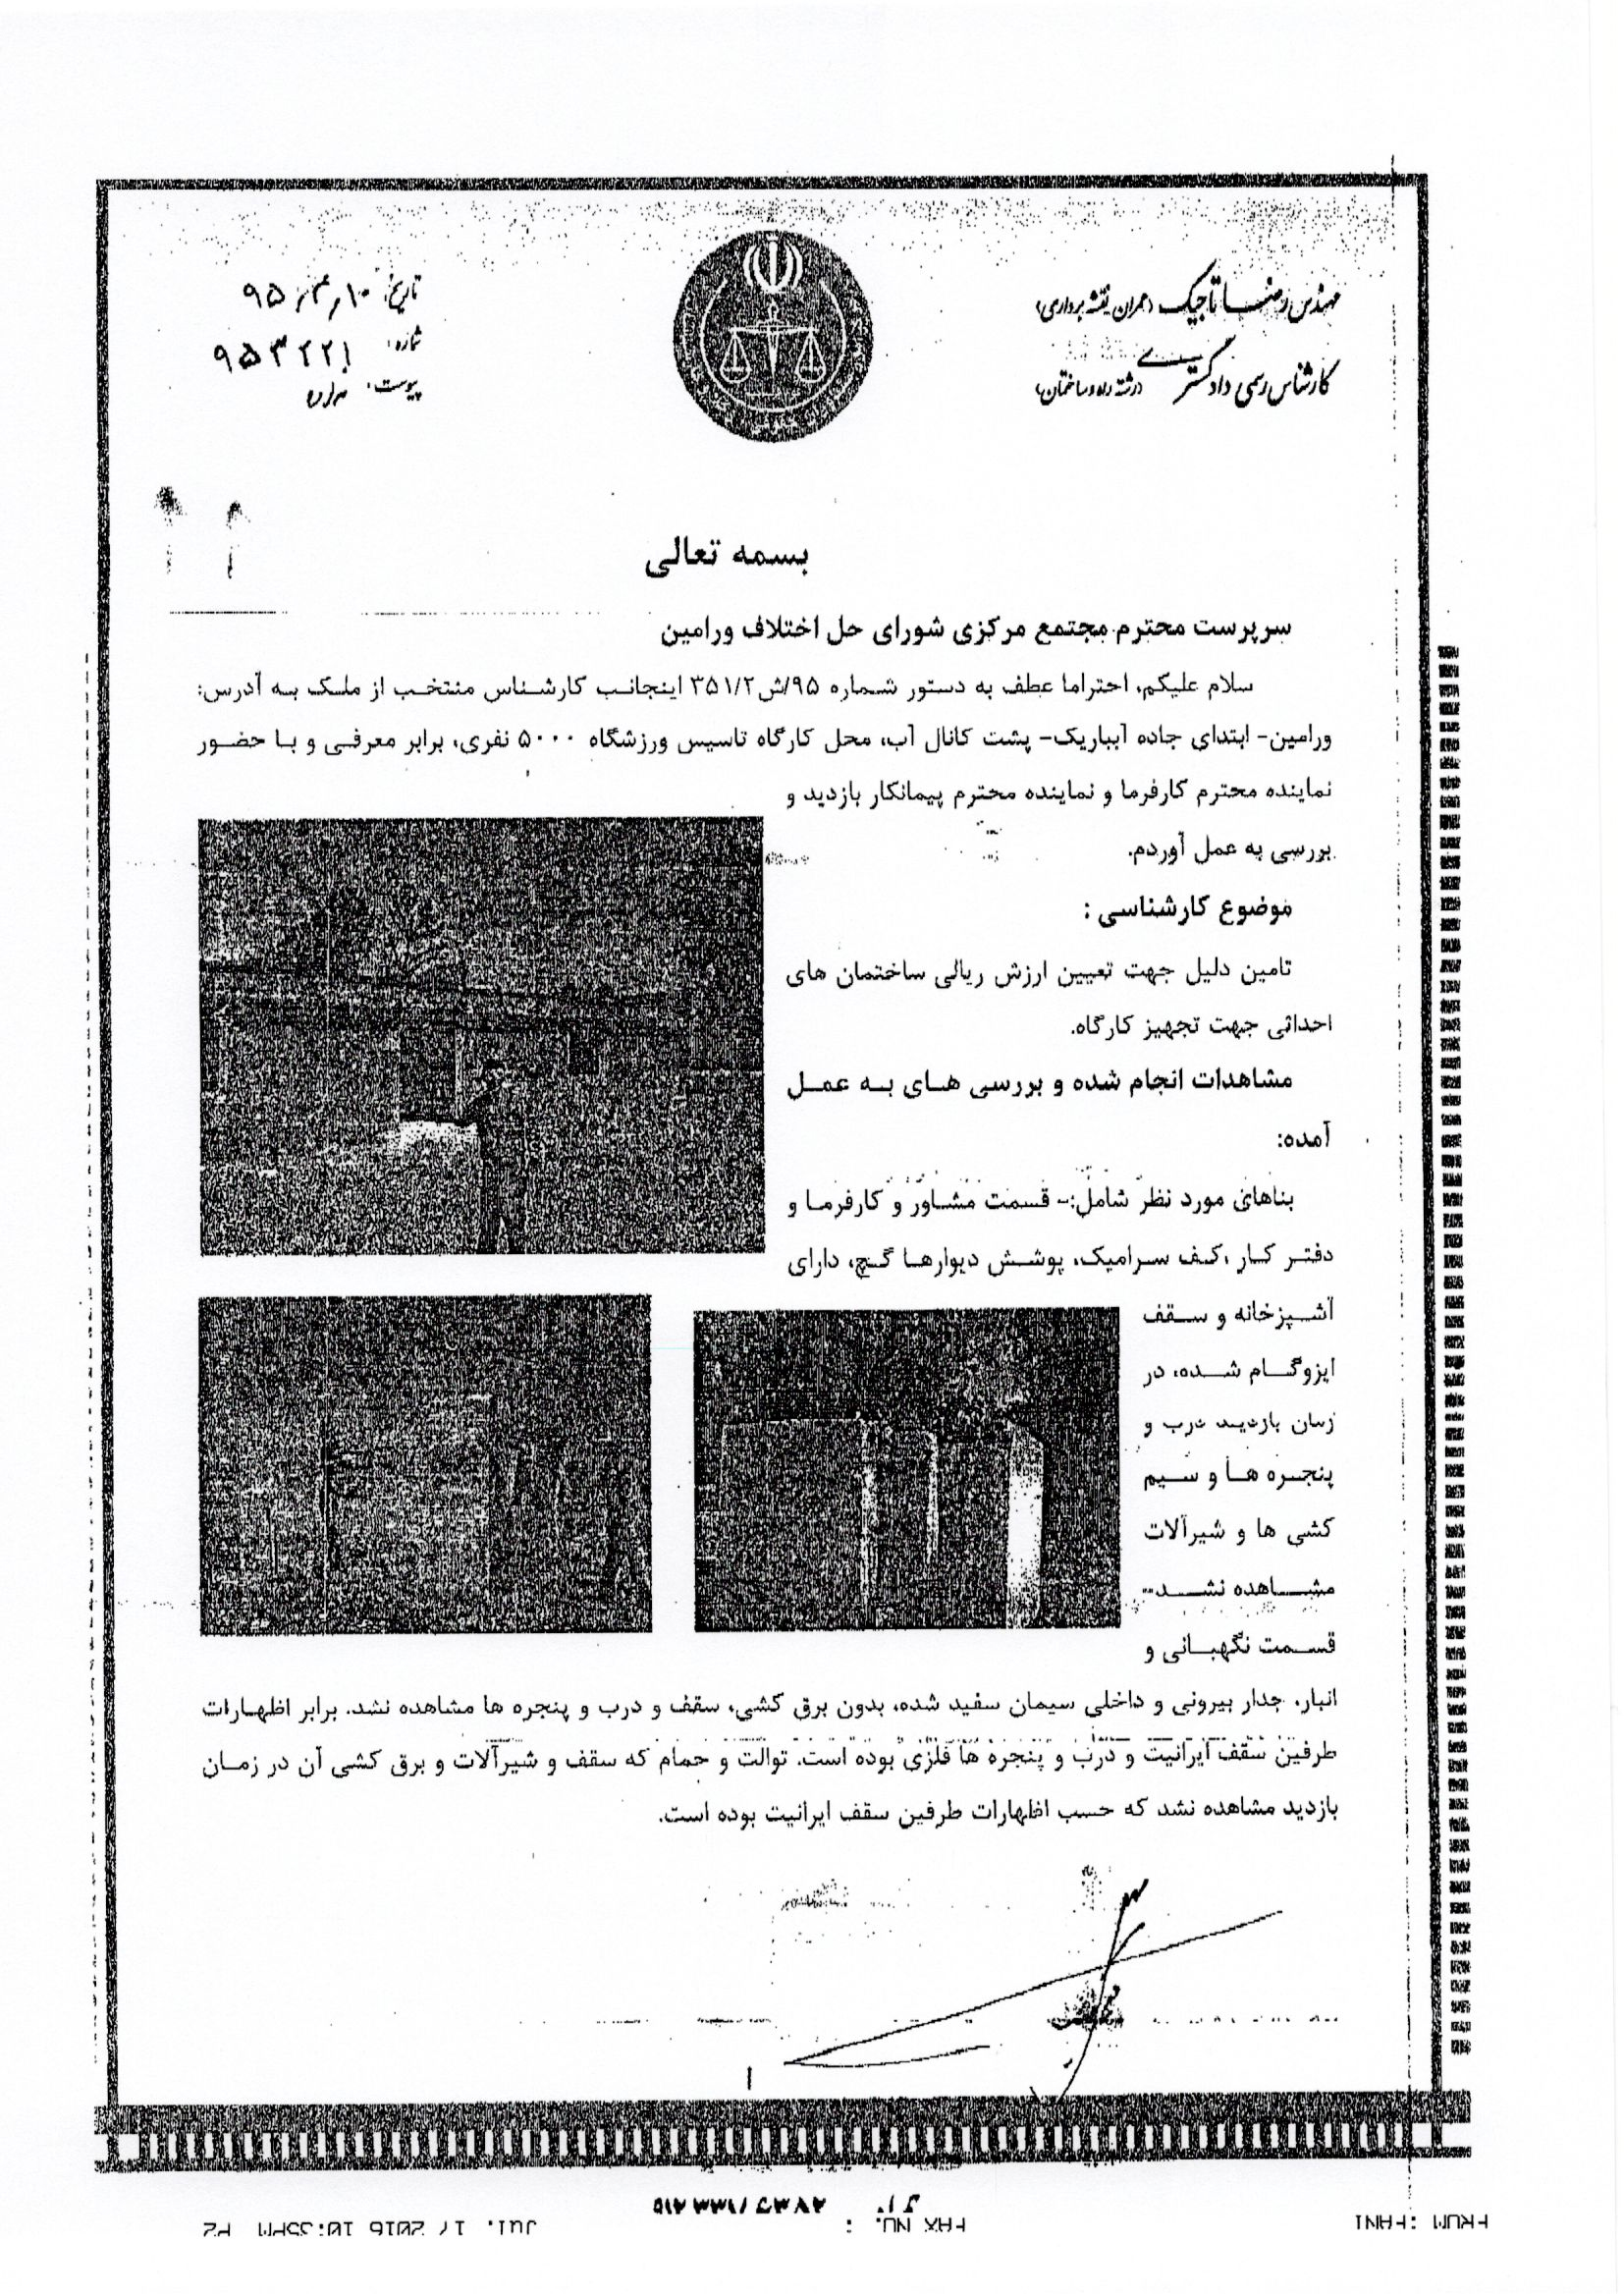 مهندس رضا تاجیک (عمران نقشه برداری)
کارشناس رسمی دادگستری (رشته راه و ساختمان)
تاریخ:
شماره: ۹۵۳۲۲۱
پیوست:
بسمه تعالی
سرپرست محترم مجتمع مرکزی شورای حل اختلاف ورامین
سلام علیکم، احتراما عطف به دستور شماره ۹۵/ش۳۵۱/۲ اینجانب کارشناس منتخب از ملک به آدرس:
ورامین- ابتدای جاده آبباریک- پشت کانال آب، محل کارگاه تاسیس ورزشگاه ۵۰۰۰ نفری، برابر معرفی و با حضور
نماینده محترم کارفرما و نماینده محترم پیمانکار بازدید و
بررسی به عمل آوردم.
موضوع کارشناسی :
تامین دلیل جهت تعیین ارزش ریالی ساختمان های
احداثی جهت تجهیز کارگاه.
مشاهدات انجام شده و بررسی های به عمل
آمده:
بناهای مورد نظر شامل:- قسمت مشاور و کارفرما و
دفتر کار ،کف سرامیک، پوشش دیوارها گچ، دارای
آشپزخانه و سقف
ایزوگام شده، در
زمان بازدید درب و
پنجره ها و سیم
کشی ها و شیرآلات
مشاهده نشد-
قسمت نگهبانی و
انبار، جدار بیرونی و داخلی سیمان سفید شده، بدون برق کشی، سقف و درب و پنجره ها مشاهده نشد. برابر اظهارات
طرفین سقف ایرانیت و درب و پنجره ها فلزی بوده است. توالت و حمام که سقف و شیرآلات و برق کشی آن در زمان
بازدید مشاهده نشد که حسب اظهارات طرفین سقف ایرانیت بوده است.
۱
FROM :FANI
FAX NO. :
Jul. 17 2016 10:35PM P2